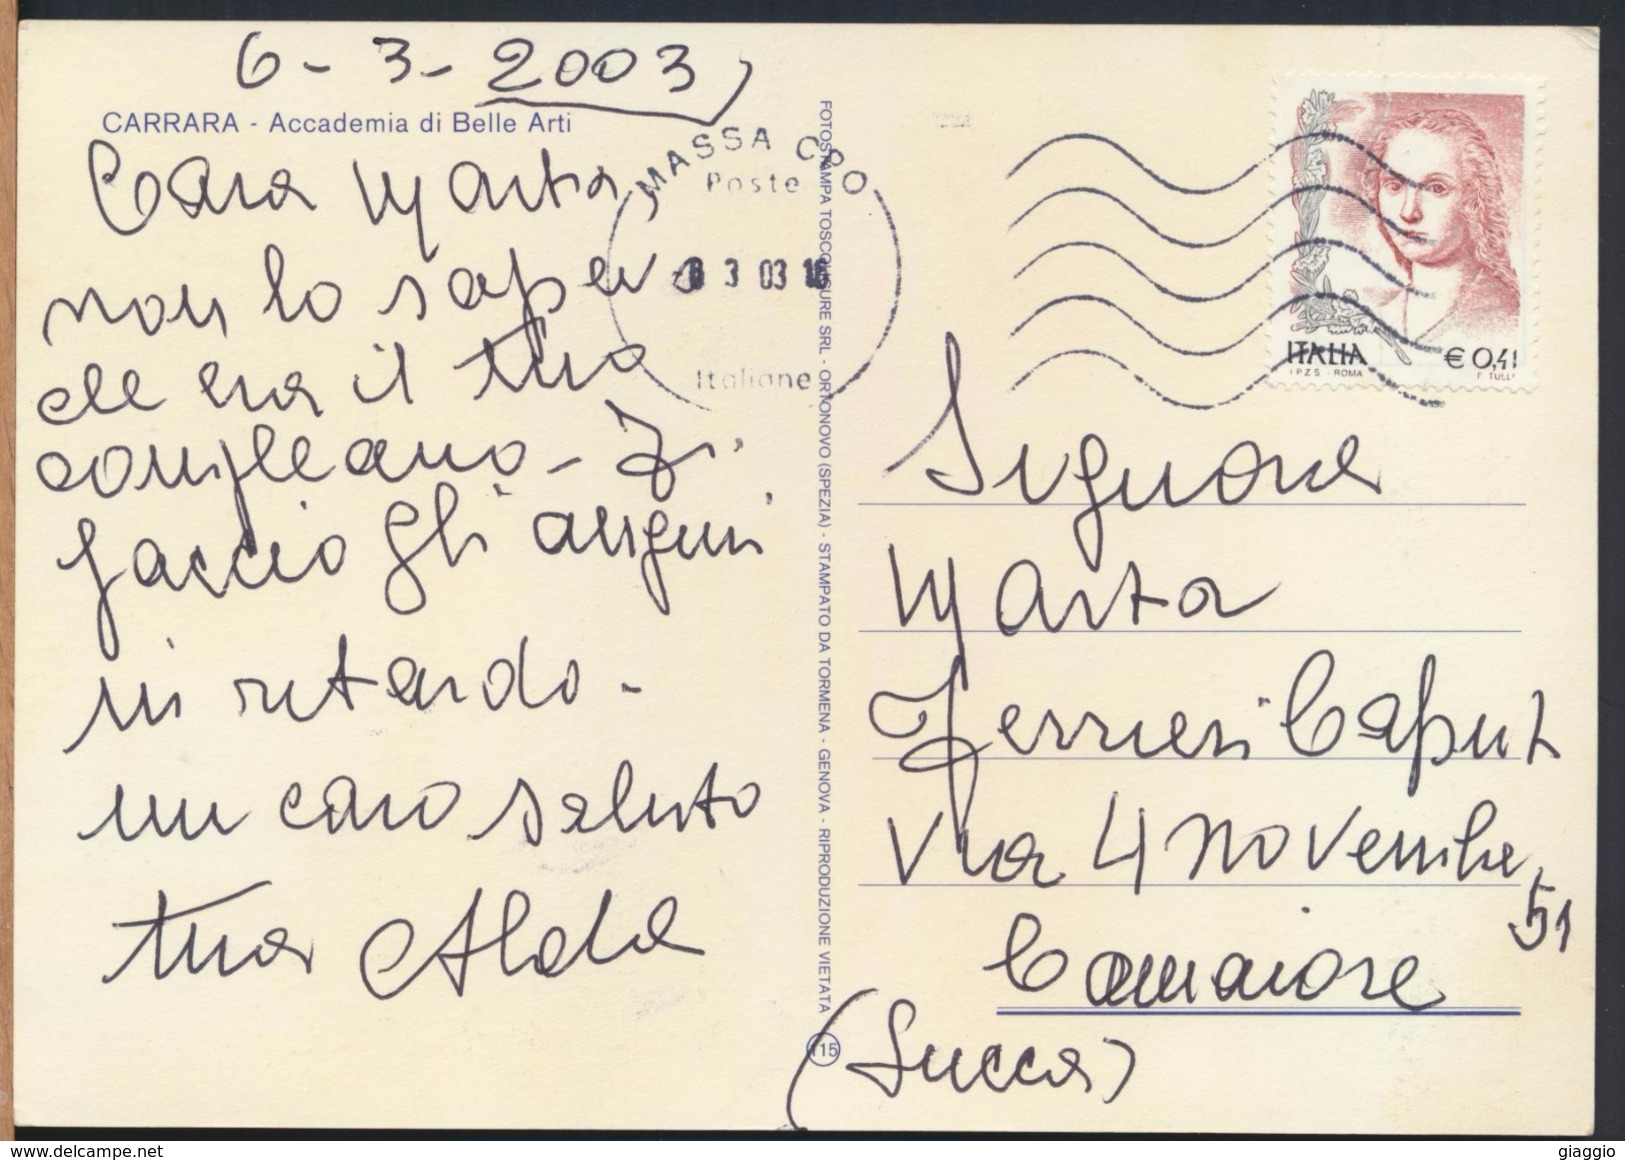 6-3-2003
CARRARA - Accademia di Belle Arti
Cara Marta,
non lo sapevo
che era il tuo
compleano - Ti
faccio gli auguri
in ritardo -
un caro saluto
tua Alda
MASSA CPO
Poste
3 03 16
Italiane
FOTOSTAMPA TOSCOLIGURE SRL - ORTONOVO (SPEZIA) - STAMPATO DA TORMENA - GENOVA - RIPRODUZIONE VIETATA
115
ITALIA
€ 0,41
I.P.Z.S. - ROMA
T. TULLI
Signora
Marta
Ferrieri Caput
Via 4 novembre,
51
Camaiore
(Lucca)
giaggio